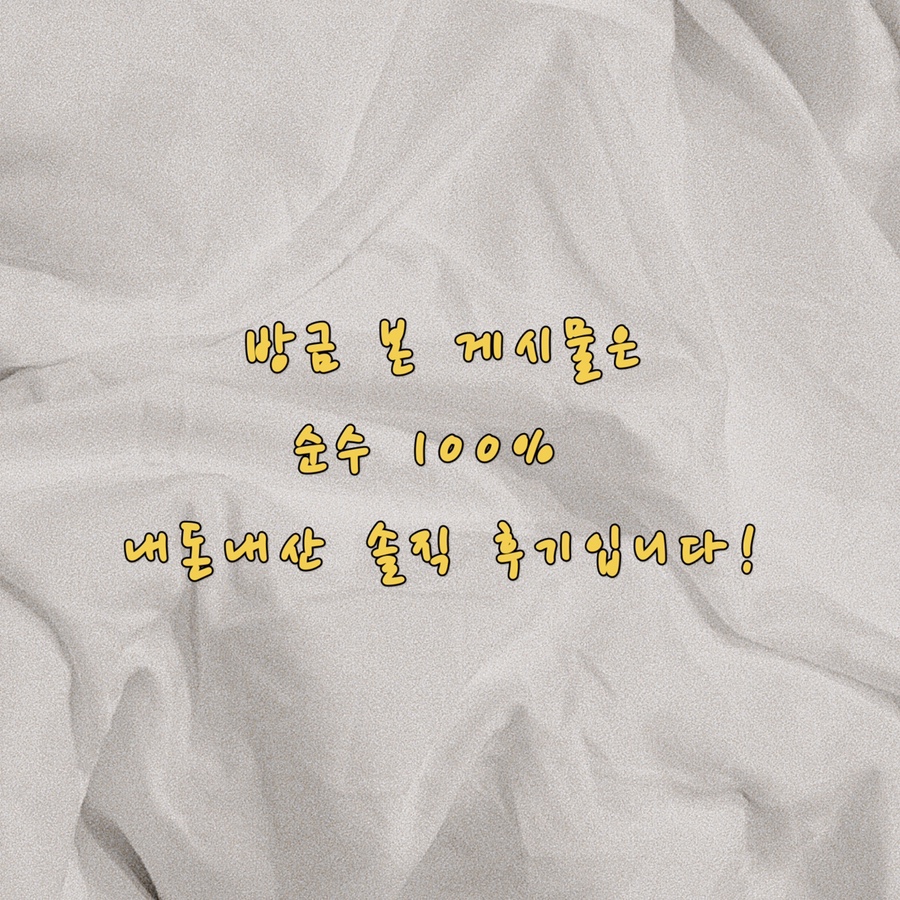 방금 본 게시물은
순수 100%
내돈내산 솔직 후기입니다!